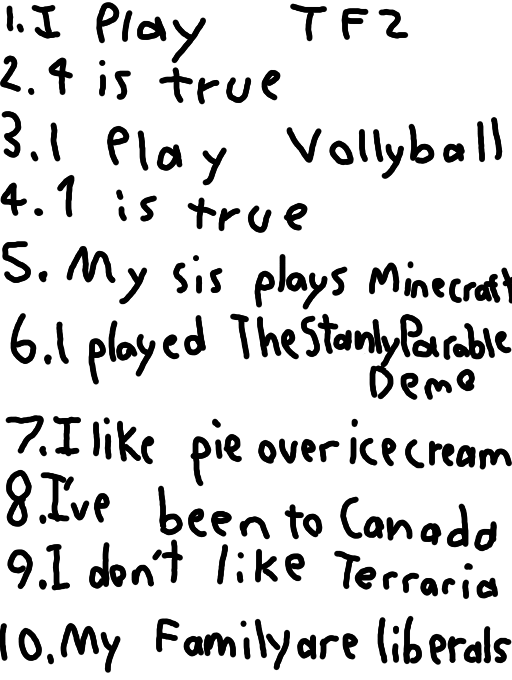 1. I Play TF2
2. 4 is true
3. I Play Vollyball
4. 1 is true
5. My sis plays Minecraft
6. I played TheStanlyParable
Demo
7. I like pie over ice cream
8. I've been to Canada
9. I don't like Terraria
10. My Family are liberals